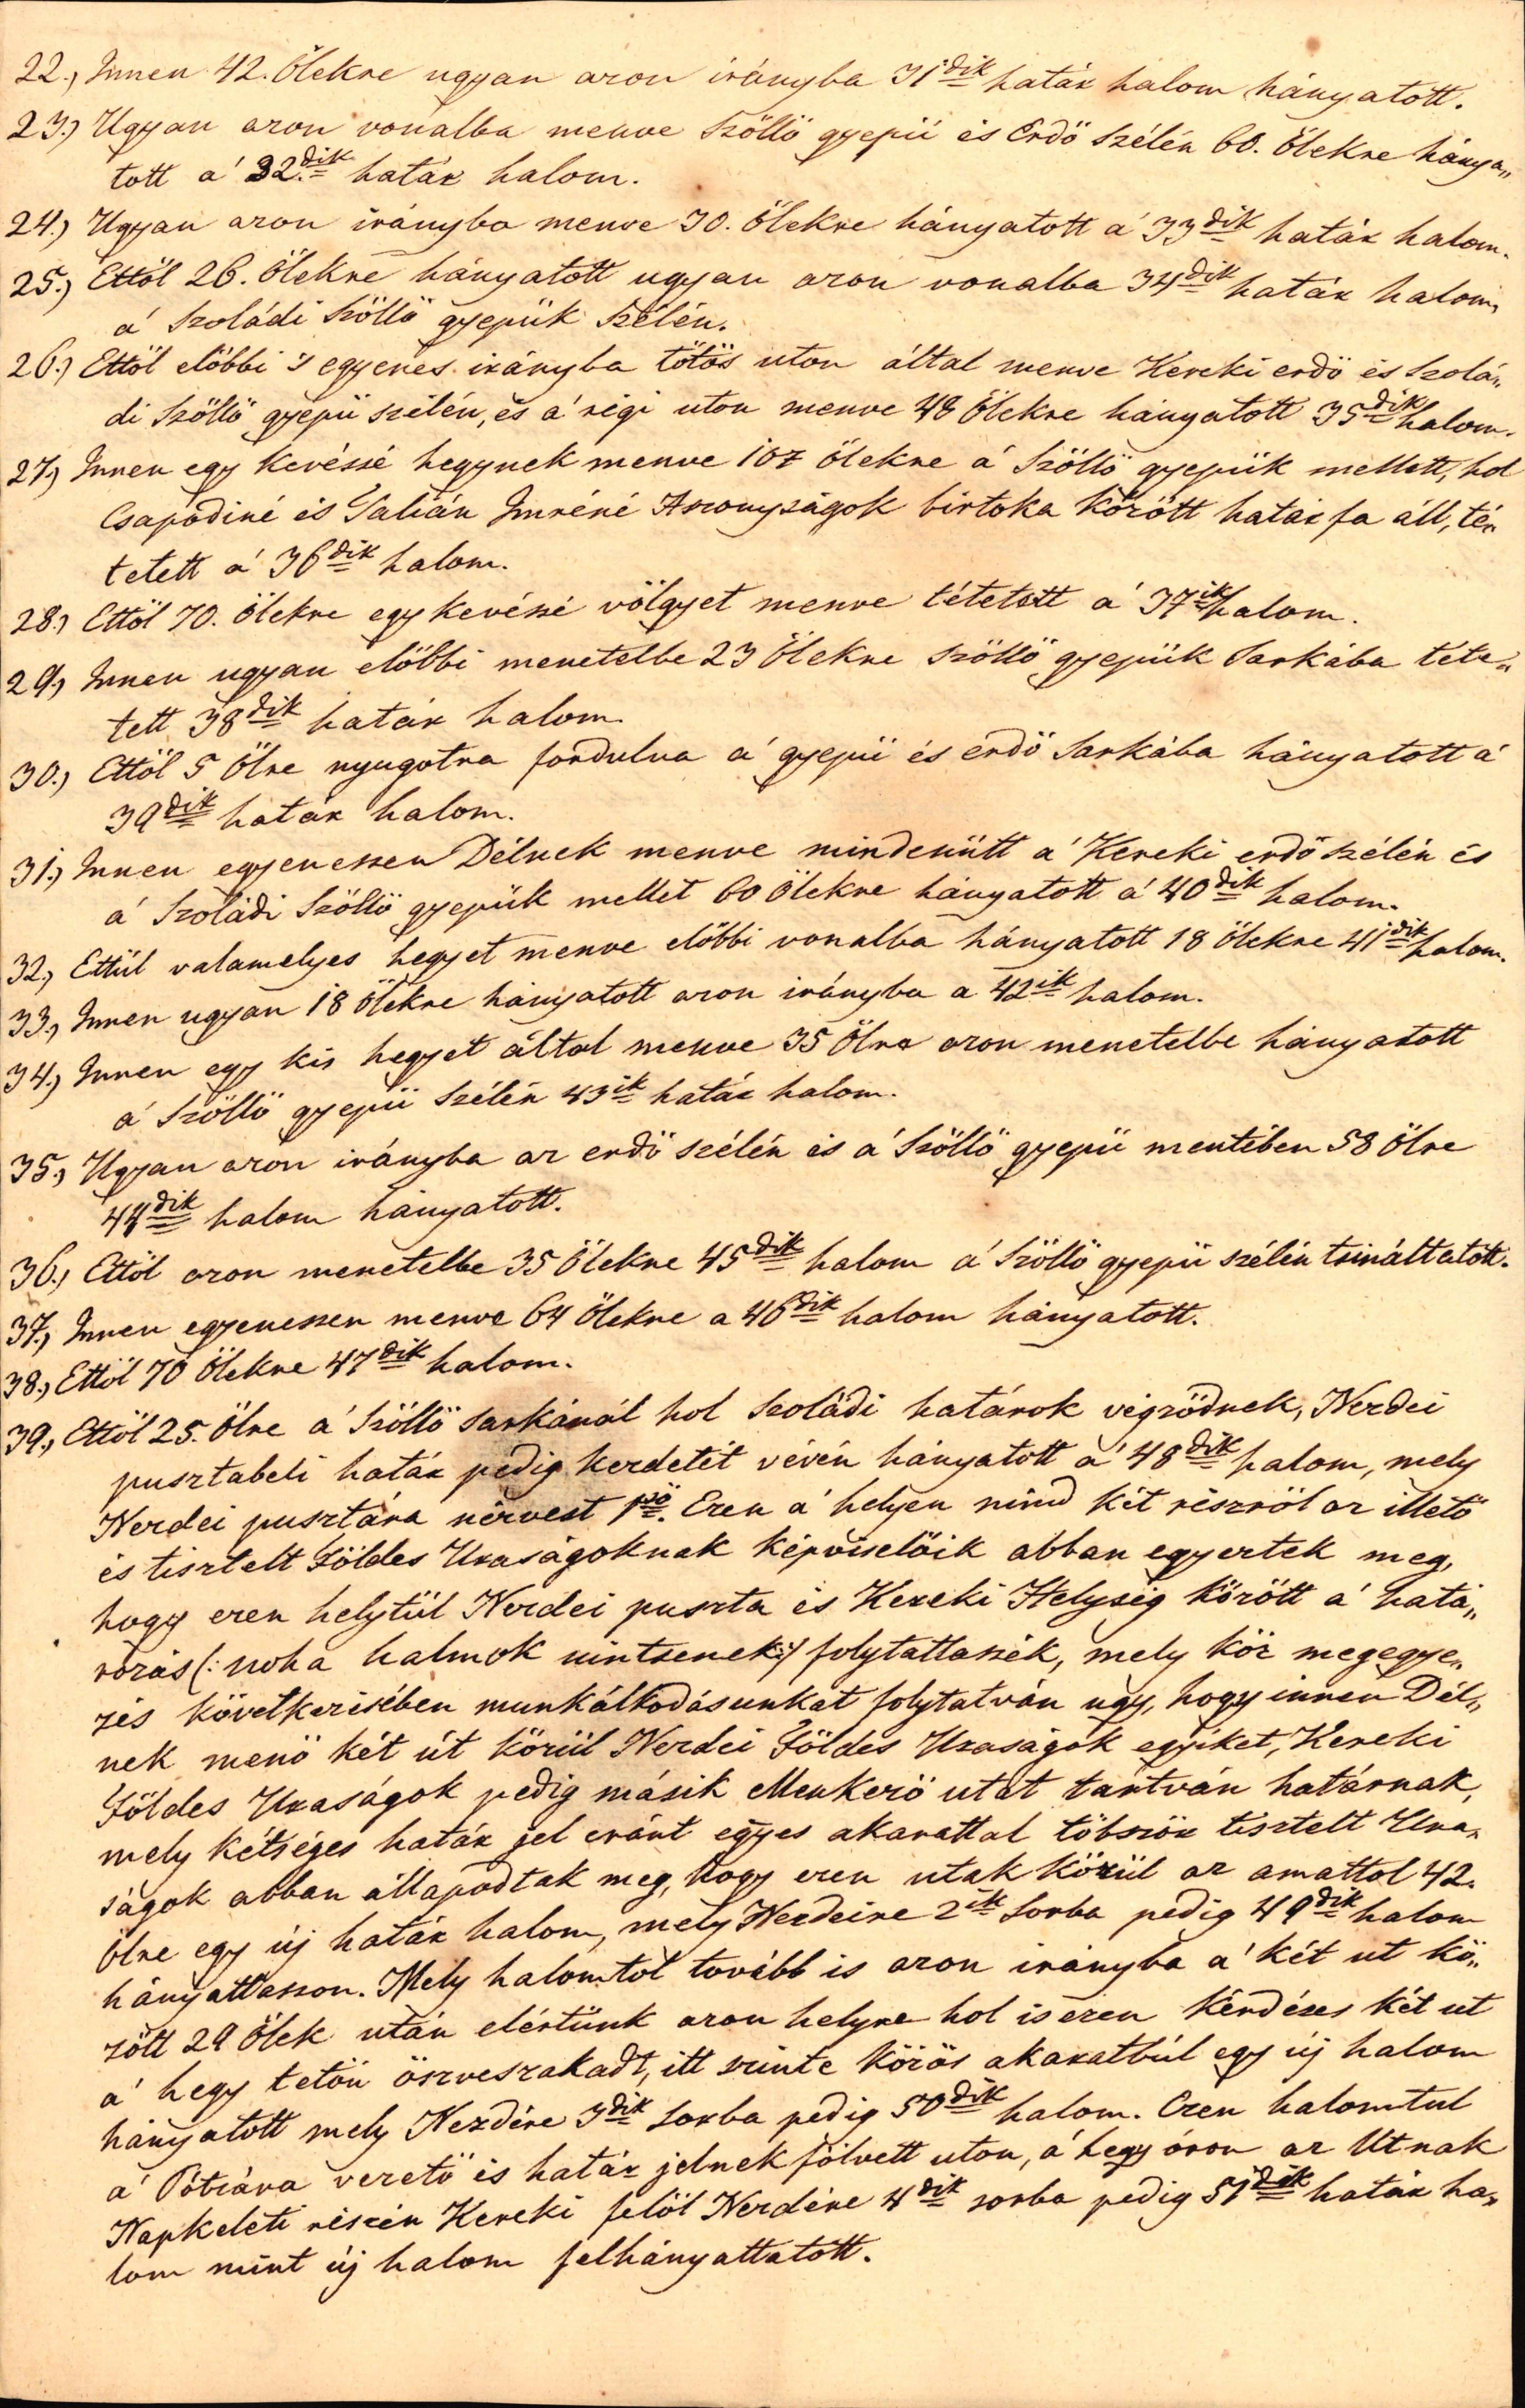 22., Innen 42. Ölekre ugyan azon irányba 31dik határ halom hányatott.
23.) Ugyan azon vonalba menve Szöllö gyepü és Erdö Szélén 60. ölekre hánya„
tott a' 32.dik határ halom.
24.) Ugyan azon irányba menve 30. ölekre hányatott a' 33dik határ halom.
25.) Ettöl 26. ölekre hányatott ugyan azon vonalba 34dik határ halom,
a' Szoládi Szöllö gyepük Szélén.
26.) Ettöl elöbbi 's egyenes irányba tötös uton által menve Kereki erdö és Szolá„
di Szöllö gyepü szélén, és a' régi uton menve 48 Ölekre hányatott 35dik halom.
27.) Innen egy kevéssé hegynek menve 107 ölekre a' Szöllö gyepük mellett, hol
Csapodiné és Galián Imréné Aszonyságok birtoka között határ fa áll, té„
tetett a' 36dik halom.
28.) Ettöl 70. ölekre egy kevéssé völgyet menve tétetett a' 37ik halom.
29.) Innen ugyan elöbbi menetelbe 23 Ölekre szöllö gyepük Sarkába téte„
tett 38dik határ halom.
30.) Ettöl 5 Ölre nyugotra fordulva a' gyepü és erdö Sarkába hányatott a'
39dik határ halom.
31.) Innen egyenessen Délnek menve mindenütt a' Kereki erdö szélén és
a' Szoládi Szöllö gyepük mellet 60 Ölekre hányatott a' 40dik halom.
32., Ettül valamelyes hegyet menve elöbbi vonalba hányatott 18 ölekre 41dik halom.
33., Innen ugyan 18 Ölekre hányatott azon irányba a 42ik halom.
34.) Innen egy kis hegyet által menve 35 Ölre azon menetelbe hányatott
a' Szöllö gyepü Szélén 43ik határ halom.
35.) Ugyan azon irányba az erdö szélén és a' Szöllö gyepü mentében 58 ölre
44dik halom hányatott.
36.) Ettöl azon menetelbe 35 Ölekre 45dik halom a' Szöllö gyepü szélén tsináltatott.
37., Innen egyenessen menve 64 Ölekre a 46dik halom hányatott.
38., Ettöl 70 Ölekre 47dik halom.
39., Ettöl 25. ölre a' Szöllö sarkánál hol Szoládi határok végzödnek, Nezdei
pusztabeli határ pedig kezdetét vévén hányatott a' 48dik halom, mely
Nezdei pusztára nézvest 1sö. Ezen a' helyen mind két részröl az illetö
és tisztelt Földes Uraságoknak képviselöik abban egyeztek meg,
hogy ezen helytül Nezdei puszta és Kereki Helység között a' hatá„
rozás (: noha halmok nintsenek :) folytattassék, mely köz megegye„
zés következésében munkálkodásunkat folytatván ugy, hogy innen Dél„
nek menö két út közül Nezdei Földes Uraságok egyiket, Kereki
Földes Uraságok pedig másik Menkezö utat tartván határnak,
mely kétséges határ jel eránt egyes akarattal többször tisztelt Ura„
ságok abban állapodtak meg, hogy ezen utak közül az amattol 42.
ölre egy új határ halom, mely Nezdeire 2ik Sorba pedig 49dik halom
hányattasson. Mely halomtol tovább is azon irányba a' két ut kö„
zött 29 ölek után elértünk azon helyre hol is ezen kérdéses két ut
a' hegy tetön öszveszakadt, itt szinte közös akaratbúl egy új halom
hányatott mely Nezdére 3dik Sorba pedig 50dik halom. Ezen halomtul
a' Pótzára vezetö és határ jelnek fölvett uton, a' hegy óron az Utnak
Napkeleti részén Kereki felöl Nezdére 4dik sorba pedig 51dik határ ha„
lom mint új halom felhányattatott.